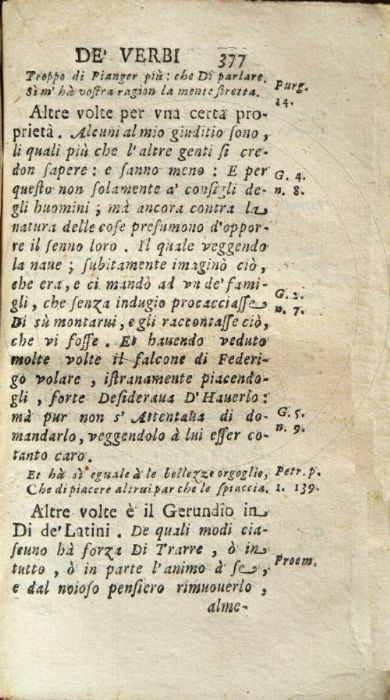 DE' VERBI 377
Troppo di Pianger più: che Di parlare.
Sì m' hà vostra ragion la mente stretta.
Purg.
14.
Altre volte per vna certa pro-
prietà. Alcuni al mio giuditio sono,
li quali più che l'altre genti si cre-
don sapere: e sanno meno: E per
questo non solamente a' consigli de-
gli huomini; mà ancora contra la
natura delle cose presumono d'oppor-
re il senno loro. Il quale veggendo
la naue; subitamente imaginò ciò,
che era, e ci mandò ad vn de' fami-
gli, che senza indugio procacciasse
Di sù montarui, e gli raccontasse ciò,
che vi fosse. Et hauendo veduto
molte volte il falcone di Federi-
go volare, istranamente piacendo-
gli, forte Desideraua D'Hauerlo:
mà pur non s' Attentaua di do-
mandarlo, veggendolo à lui esser co-
tanto caro.
G. 4.
n. 8.
G. 2.
n. 7.
G. 5.
n. 9.
Et hà sì eguale à le bellezze orgoglio,
Che di piacere altrui par che le spiaccia.
Petr. p.
1. 139.
Altre volte è il Gerundio in
Di de' Latini. De quali modi cia-
scuno hà forza Di Trarre, ò in
tutto, ò in parte l'animo à se,
e dal noioso pensiero rimuouerlo,
Proem.
alme-